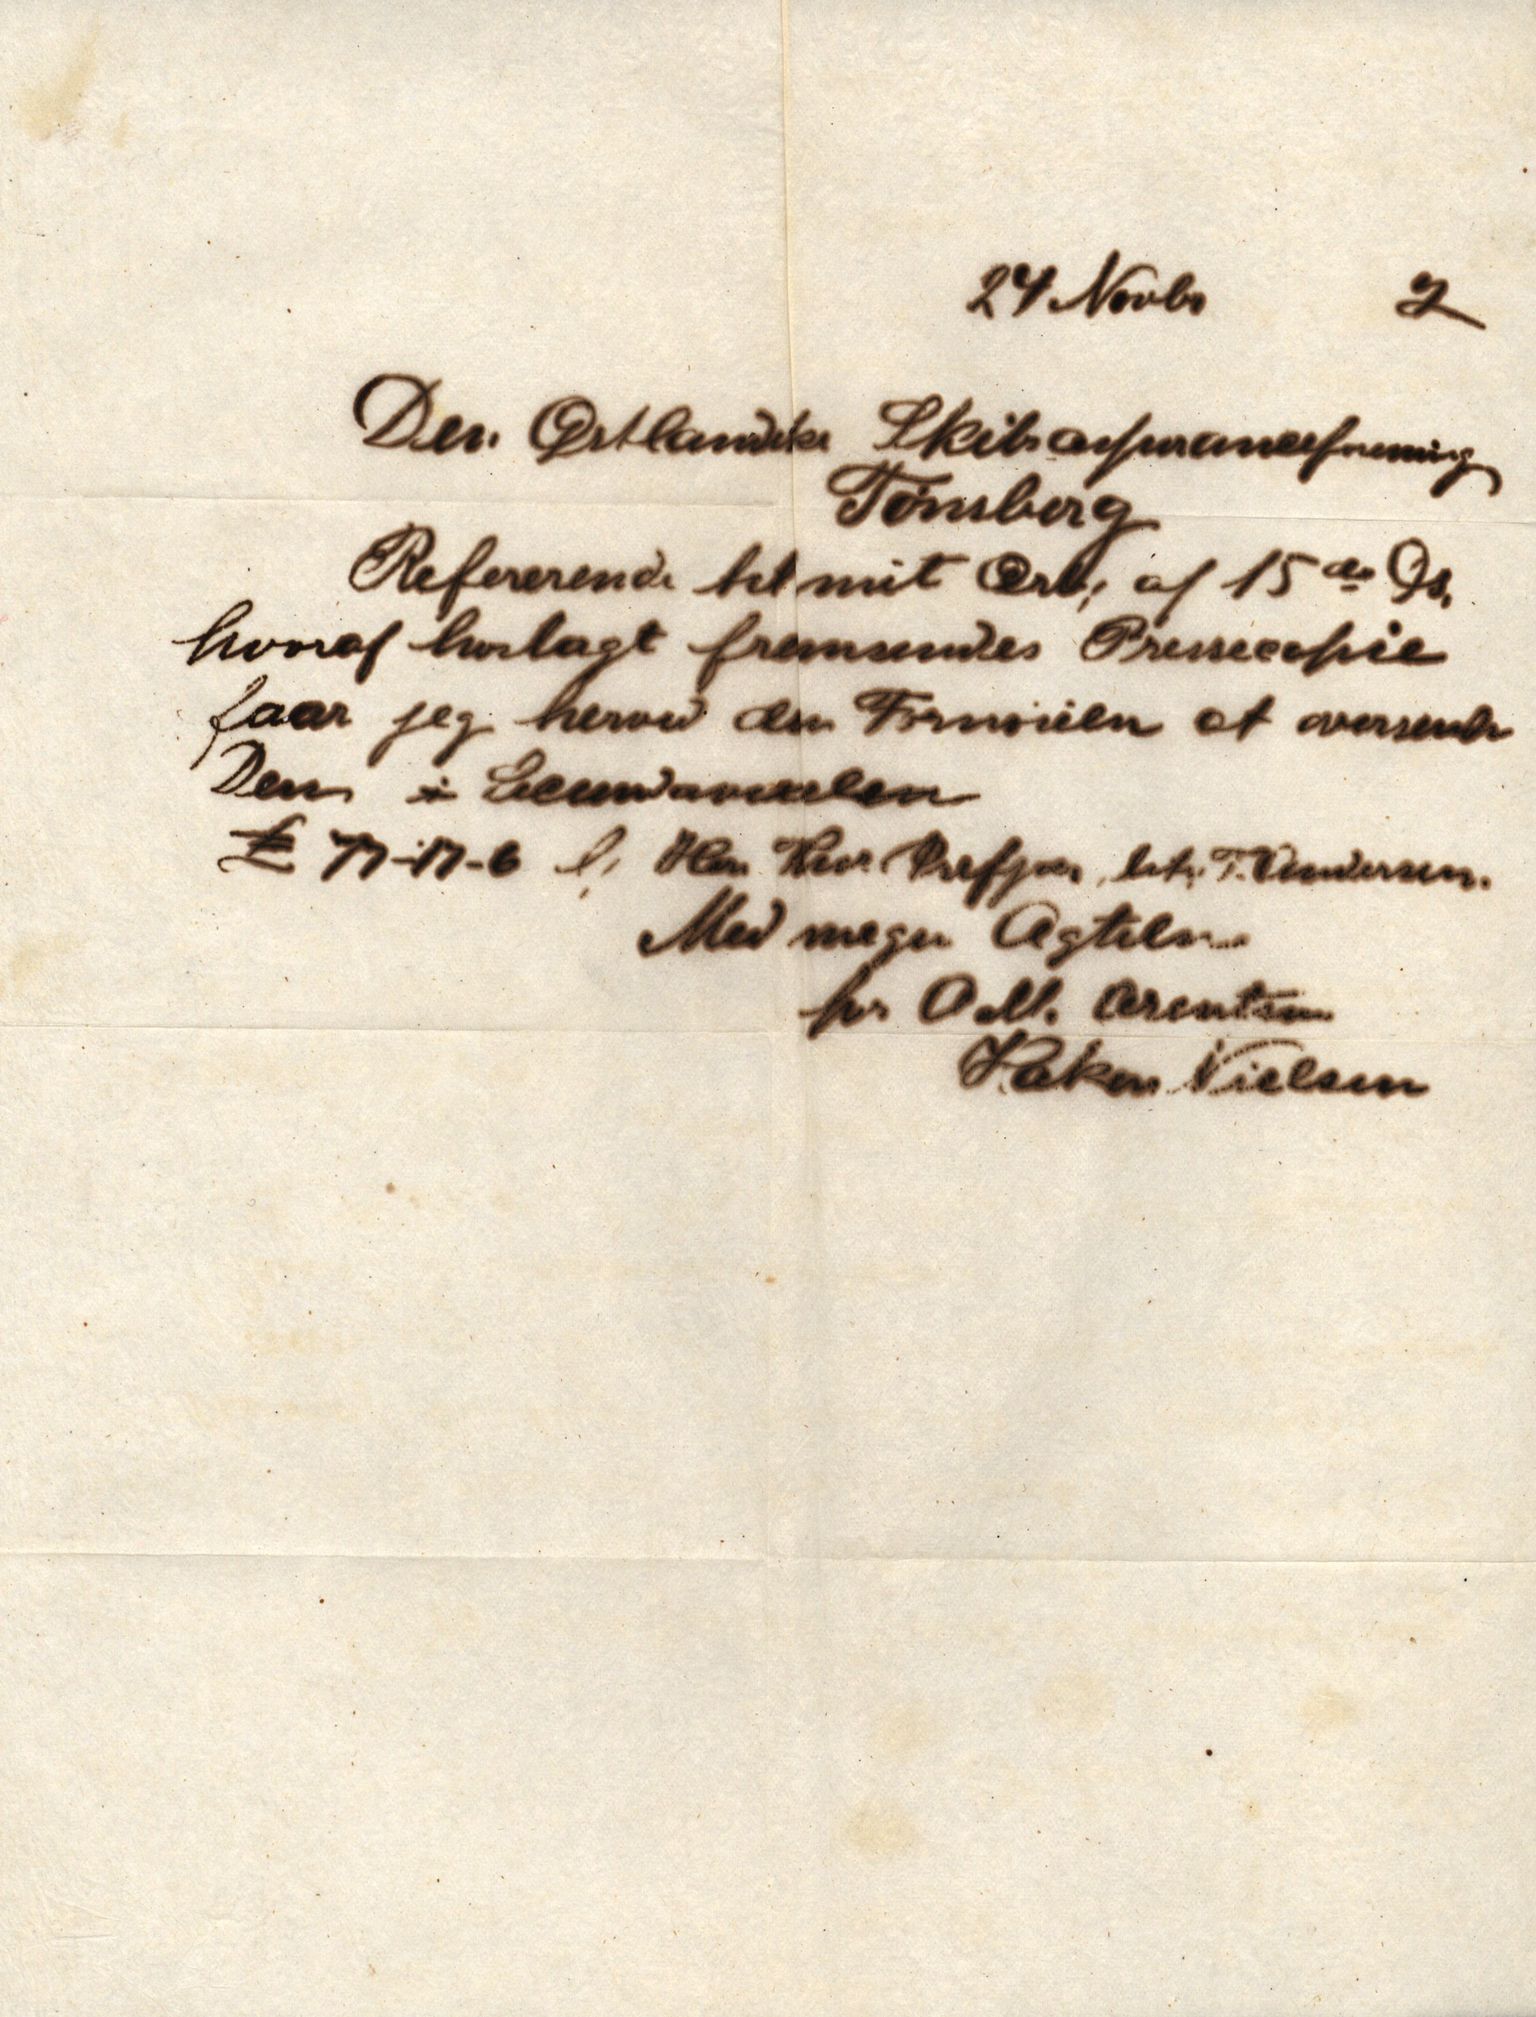 24 Novbr 2
Den Østlandske Skibsassuranceforening
Tønsberg
Refererende til mit Ærb; af 15de Ds,
hvoraf hoslagt fremsendes Pressecopie
faar jeg herved den Fornøielse at oversende
Dem i
£ 77-17-6
Med megen Agtelse
for Adh. Arentsen
Haken Nielsen